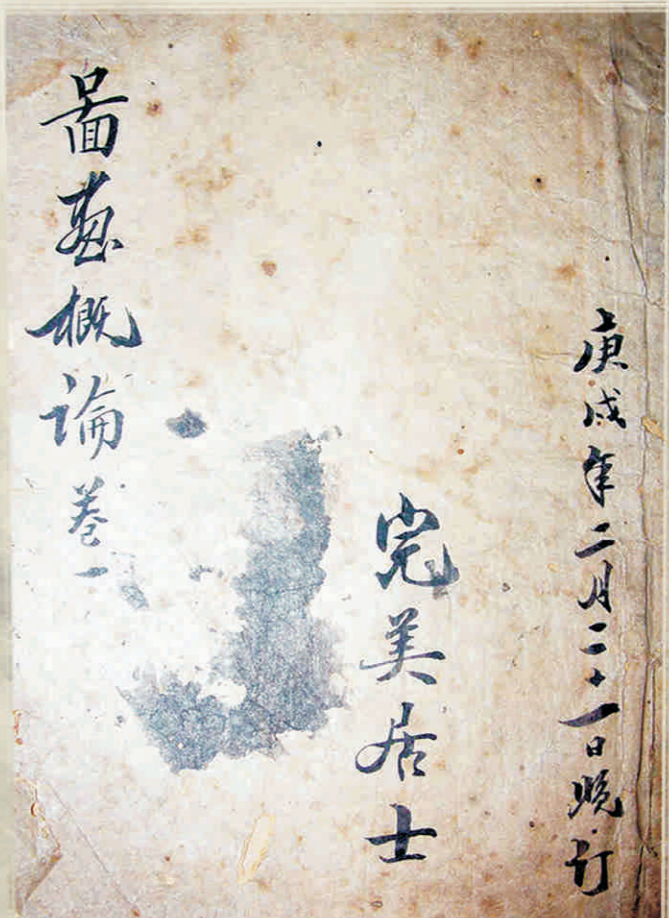 庚戌年二月二十一日晚订
完美居士
啚畫概論卷一